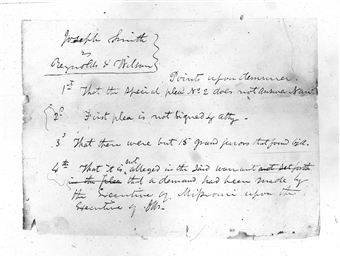 Joseph Smith
vs
Reynolds & Wilson
Points upon demurrer.
1st That the special plea No 2 does not answer Narr
2d First plea is not signed by atty.
3d That there were but 15 grand jurors that found bill.
4th That it is not alleged in the said warrant and set forth
in the plea that a demand had been made by
the Executive of Missouri upon the
Executive of Ills.